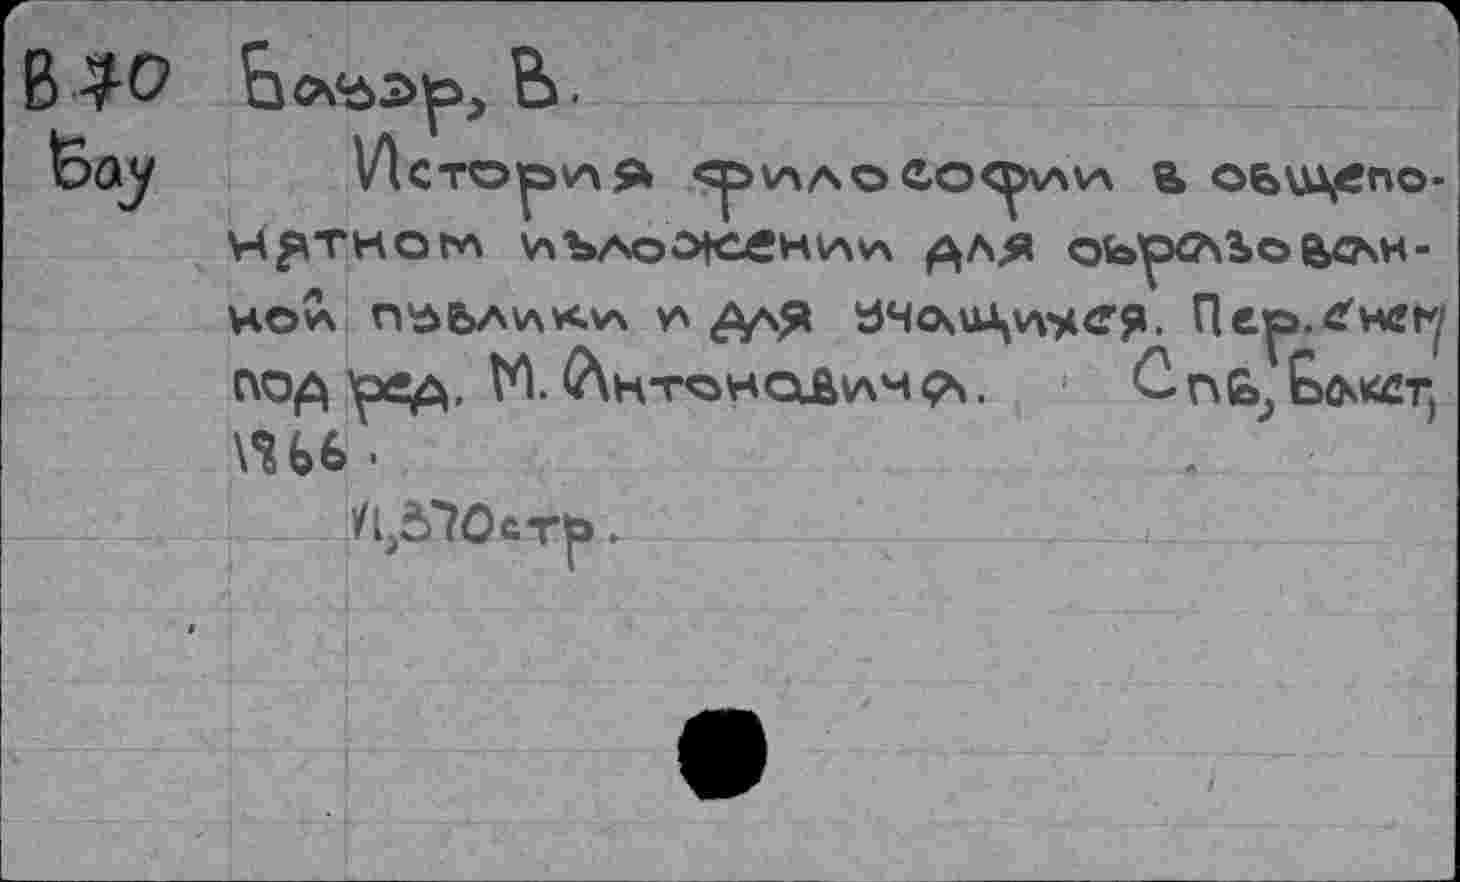 В70 Бауэр, В.
Бау История философии в общепо-
нятном изложении для образован-
ной публики и для учащихся. Пер. с нем.
под ред. М. Антоновича. Спб, Бакст,
1866.
II, 370 стр.